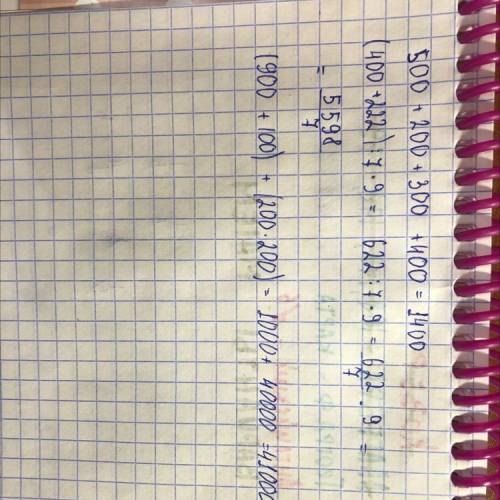 500 + 200 + 300 + 400 = 1400
(400 + 222) : 7 · 9 = 622 : 7 · 9 = 622/7 · 9 =
= 5598/7
(900 + 100) + (200 · 200) = 1000 + 40000 = 41000